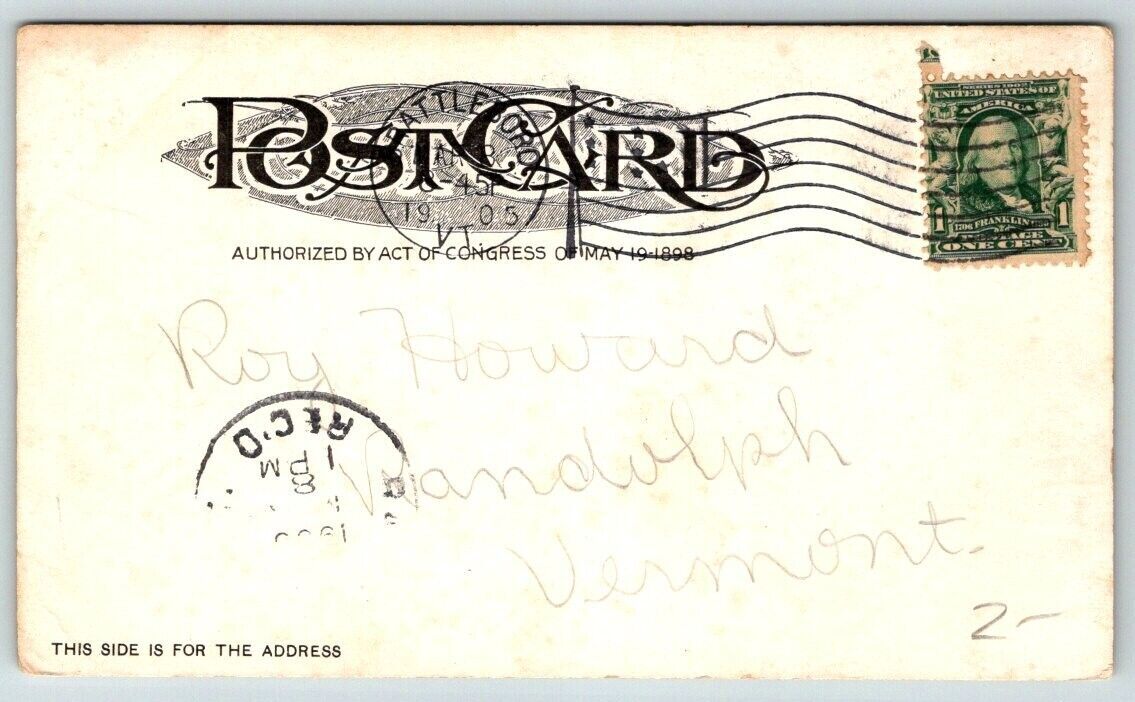 POST CARD
BRATTLEBORO
8
19 05
VT.
AUTHORIZED BY ACT OF CONGRESS OF MAY 19-1898
SERIES 1902
UNITED STATES OF
AMERICA
1 1
1706 FRANKLIN
ONE CENT
Roy Howard
Randolph
Vermont.
REC'D
1
PM
8
2-
THIS SIDE IS FOR THE ADDRESS